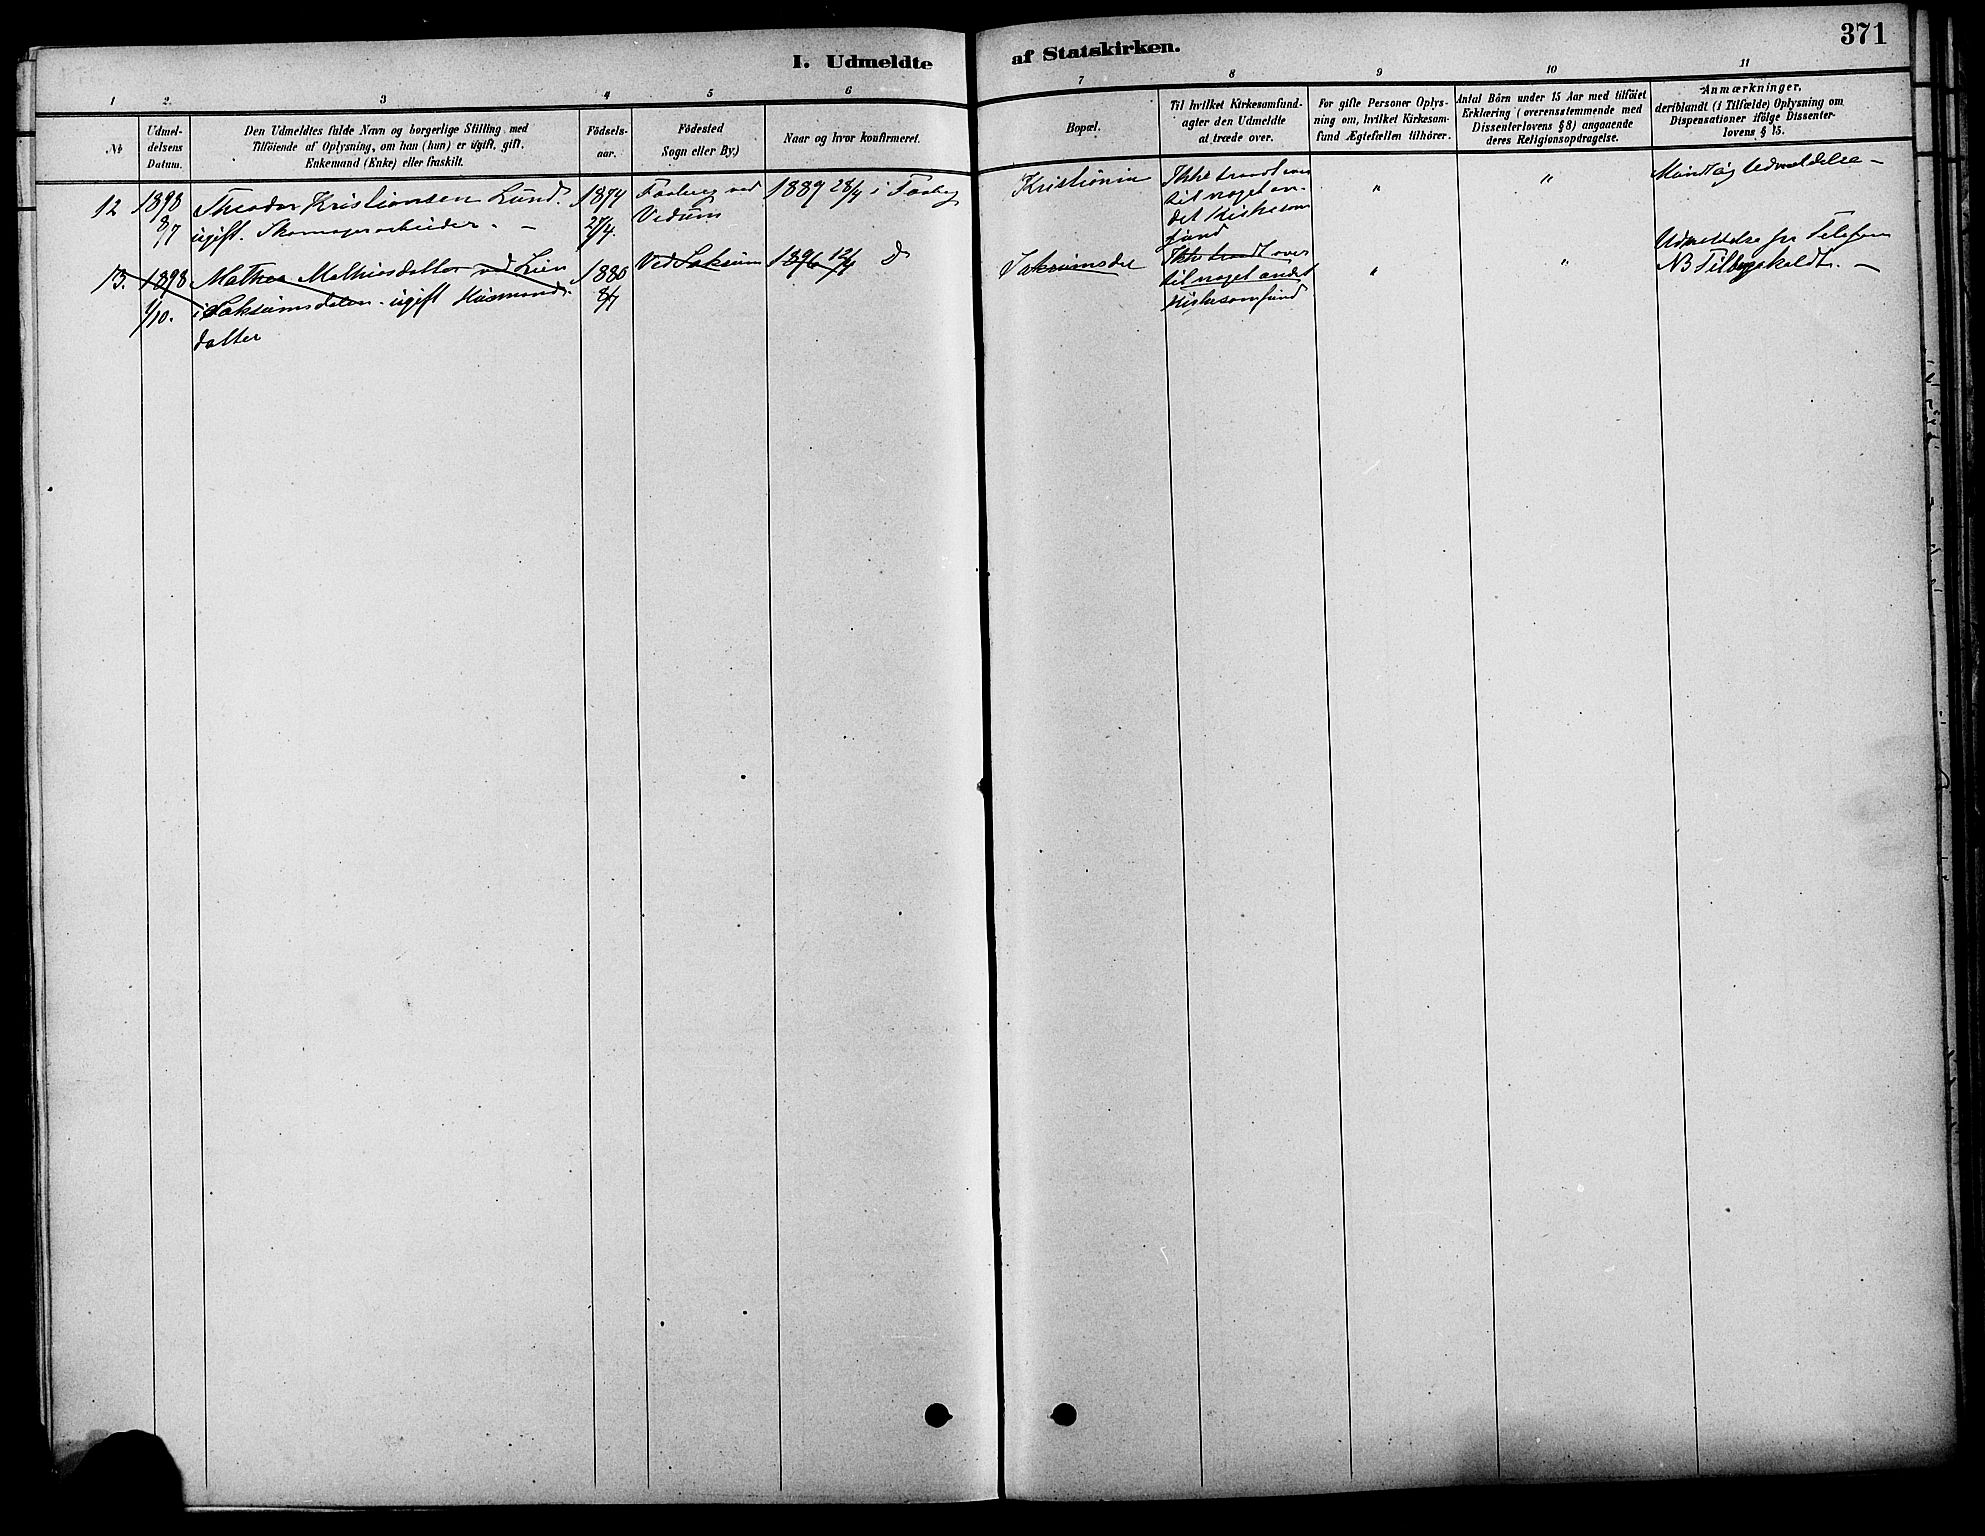 I. Udmeldte af Statskirken.
371
1 2. 3 4 5 6 7 8 9 10 11
№
Udmel-
delsens
Datum.
Den Udmeldtes fulde Navn og borgerlige Stilling med
Tilföiende af Oplysning, om han (hun) er ugift, gift,
Enkemand (Enke) eller fraskilt.
Födsels-
aar.
Födested
Sogn eller By.)
Naar og hvor konfirmeret.
Bopæl.
Til hvilket Kirkesamfund-
agter den Udmeldte
at træde over.
For gifte Personer Oplys-
ning om, hvilket Kirkesam-
fund Ægtefællen tilhörer.
Antal Börn under 15 Aar med tilföiet
Erklæring (overensstemmende med
Dissenterlovens § 8) angaaende
deres Religionsopdragelse.
Anmærkninger,
deriblandt (i Tilfælde) Oplysning om
Dispensationer ifölge Dissenter-
lovens § 15.
12
1898
8/7
Theodor Kristiansen Lund.
ugift. Skomagerarbeider. —
1874
27/4.
Faaberg ved
Vedum
1889 28/4 i Faaberg
Kristiania
Ikke traadt over
til noget an-
det Kirkesam
fund
"
"
Mundtlig Udmeldelse —
13.
1898
1/10.
Mathea Mathiasdatter ved Lien
i Saksumsdalen. ugift Husmands
datter
1880
8/7
Ved Saksum
1896 12/4 d
Saksumsdal
Ikke traadt over
til noget andet
Kirkesamfund
"
"
Udmeldelse pr Telefon
NB Tilbagekaldt. —